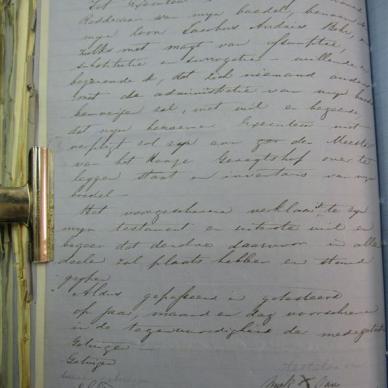 Tot Executeur
Redderaar van myn boedel, benoem
myn zoon Jacobus Andries
zulks met magt van assumptie,
substitutie en surrogatie - willende en
begeerende ik, dat zich niemand anders
met de administratie van myn boedel
bemoeije zal, met wil en begeerte
dat myn benoemde Executeur niet
verpligt zal zyn aan den Meester
van het Hooge Geregtshof over te
leggen staat en inventaris van myn
boedel -
Het voorgeschrevene verklaart te zyn
myn testament en uiterste wil en
begeer dat dezelve daarvoor in alle
deele zal plaats hebben en stand
grypen
Aldus gepasseerd en getesteerd
op jaar, maand en dag voorschreven
in de tegenwoordigheid der medegetekende
Getuigen -
Getuigen